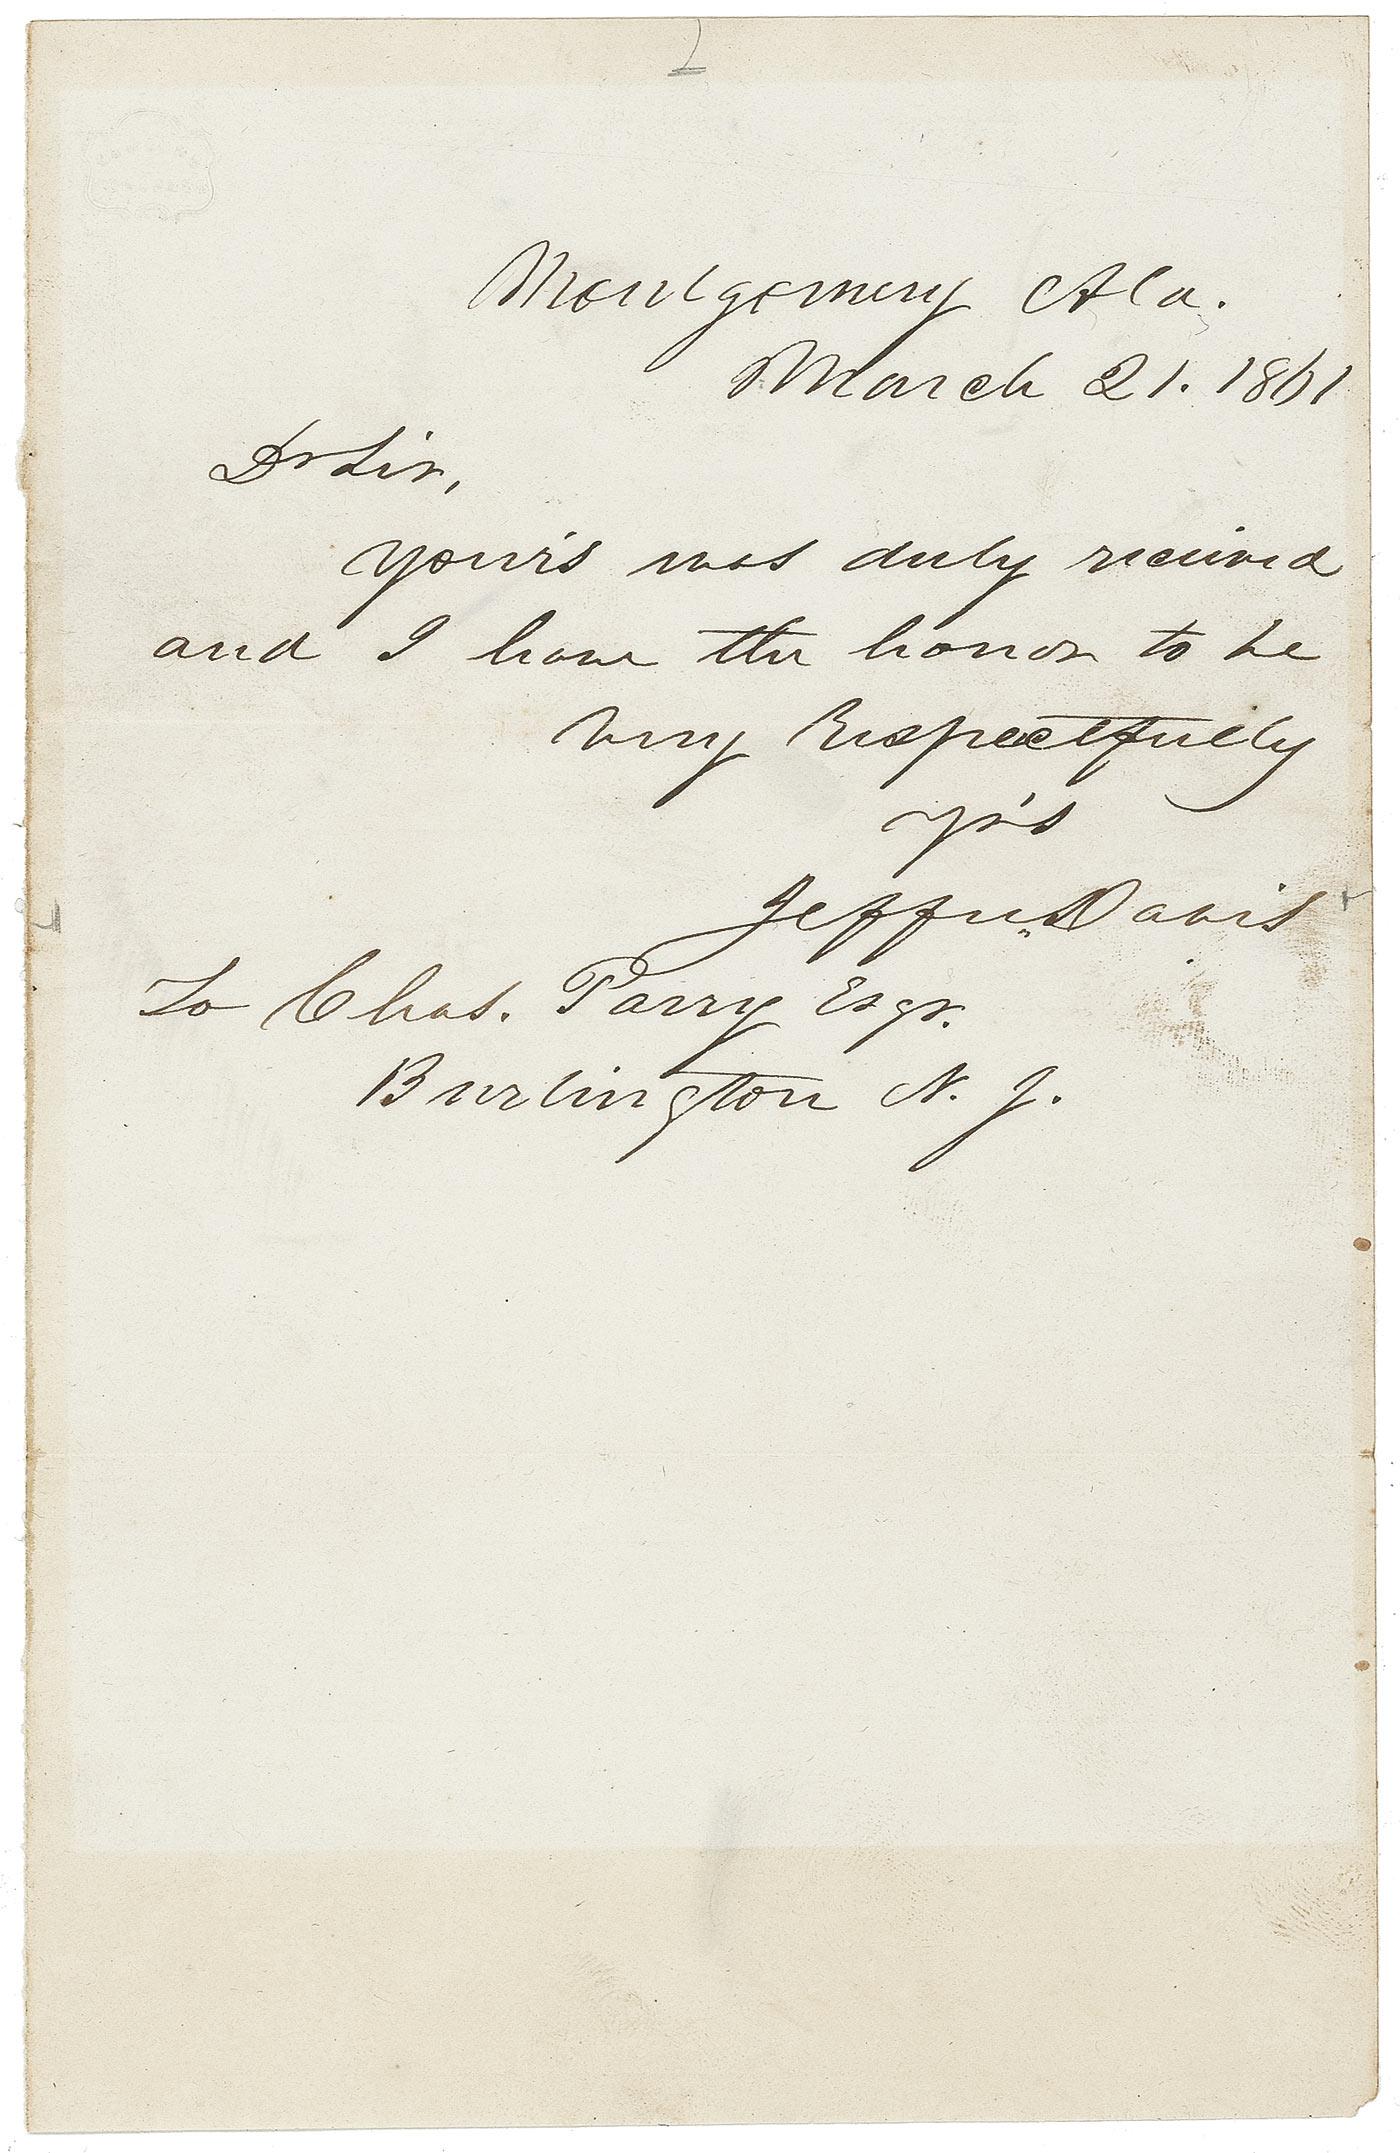 Montgomery Ala.
March 21. 1861
Dr Sir,
Your's was duly received
and I have the honor to be
Very Respectfully
yr's
Jeffn. Davis
To Chas. Parry Esqr.
Burlington N. J.